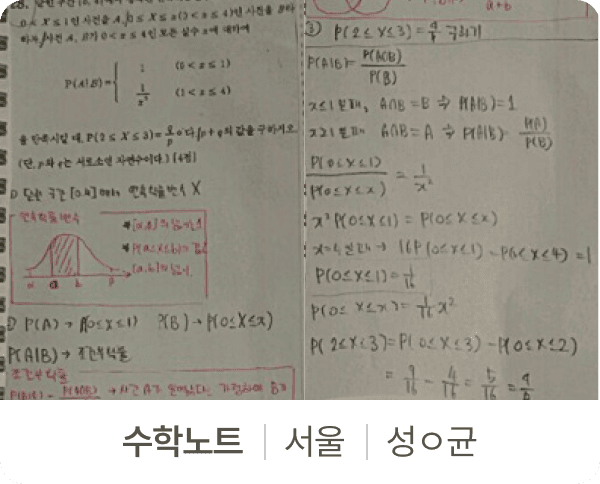 0 ≤ X ≤ 1인 사건을 A, 0 ≤ X ≤ x (0 < x ≤ 4)인 사건을 B라
하자. 사건 A, B가 0 < x ≤ 4인 모든 실수 x에 대하여
P(A|B)= { 1 (0 < x ≤ 1)
1/x² (1 < x ≤ 4)
을 만족시킬 때, P(2 ≤ X ≤ 3)= q/p 이다. p + q의 값을 구하시오.
(단, p와 q는 서로소인 자연수이다.) [4점]
① 닫힌 구간 [0,4]에서 연속확률변수 X
연속확률변수
② P(A) → P(0≤X≤1) P(B) → P(0≤X≤x)
P(A|B) → 조건부확률
조건부확률
a+b
③ P(2 ≤ X ≤ 3) = q/p 구하기
P(A|B)= P(A∩B)/P(B)
x≤1 일 때, A∩B = B ⇒ P(A|B)=1
x≥1 일 때 A∩B = A ⇒ P(A|B)= P(A)/P(B)
P(0≤X≤1)/P(0≤X≤x) = 1/x²
x²P(0≤X≤1) = P(0≤X≤x)
P(0≤X≤1)= 1/16
P(0≤X≤x)= 1/16 x²
P(2≤X≤3)=P(0≤X≤3)-P(0≤X≤2)
= 9/16 - 4/16 = 5/16 = q/p
수학노트 | 서울 | 성ㅇ균